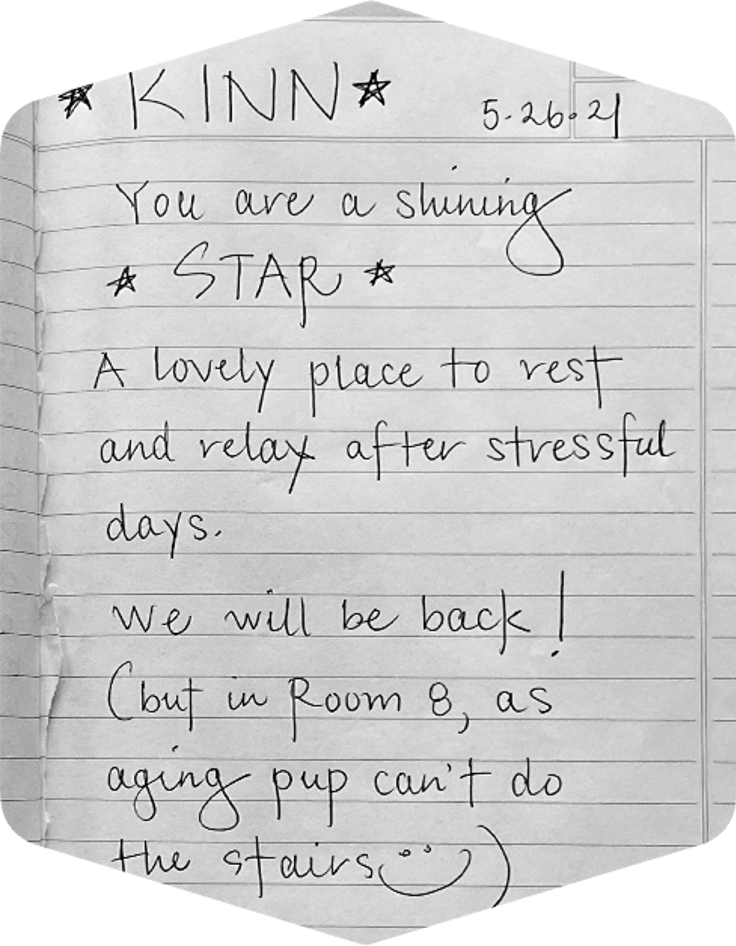 ★ KINN ★ 5.26.21
You are a shining
★ STAR ★
A lovely place to rest
and relax after stressful
days.
we will be back!
(but in Room 8, as
aging pup can't do
the stairs )